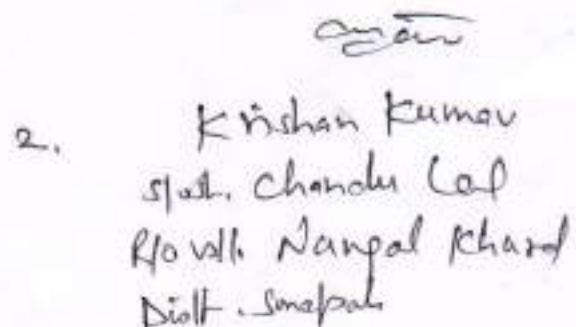 2. Krishan Kumar
S/o Sh. Chander Lal
R/o Vill. Nangal Khurd
Distt. Sonepat